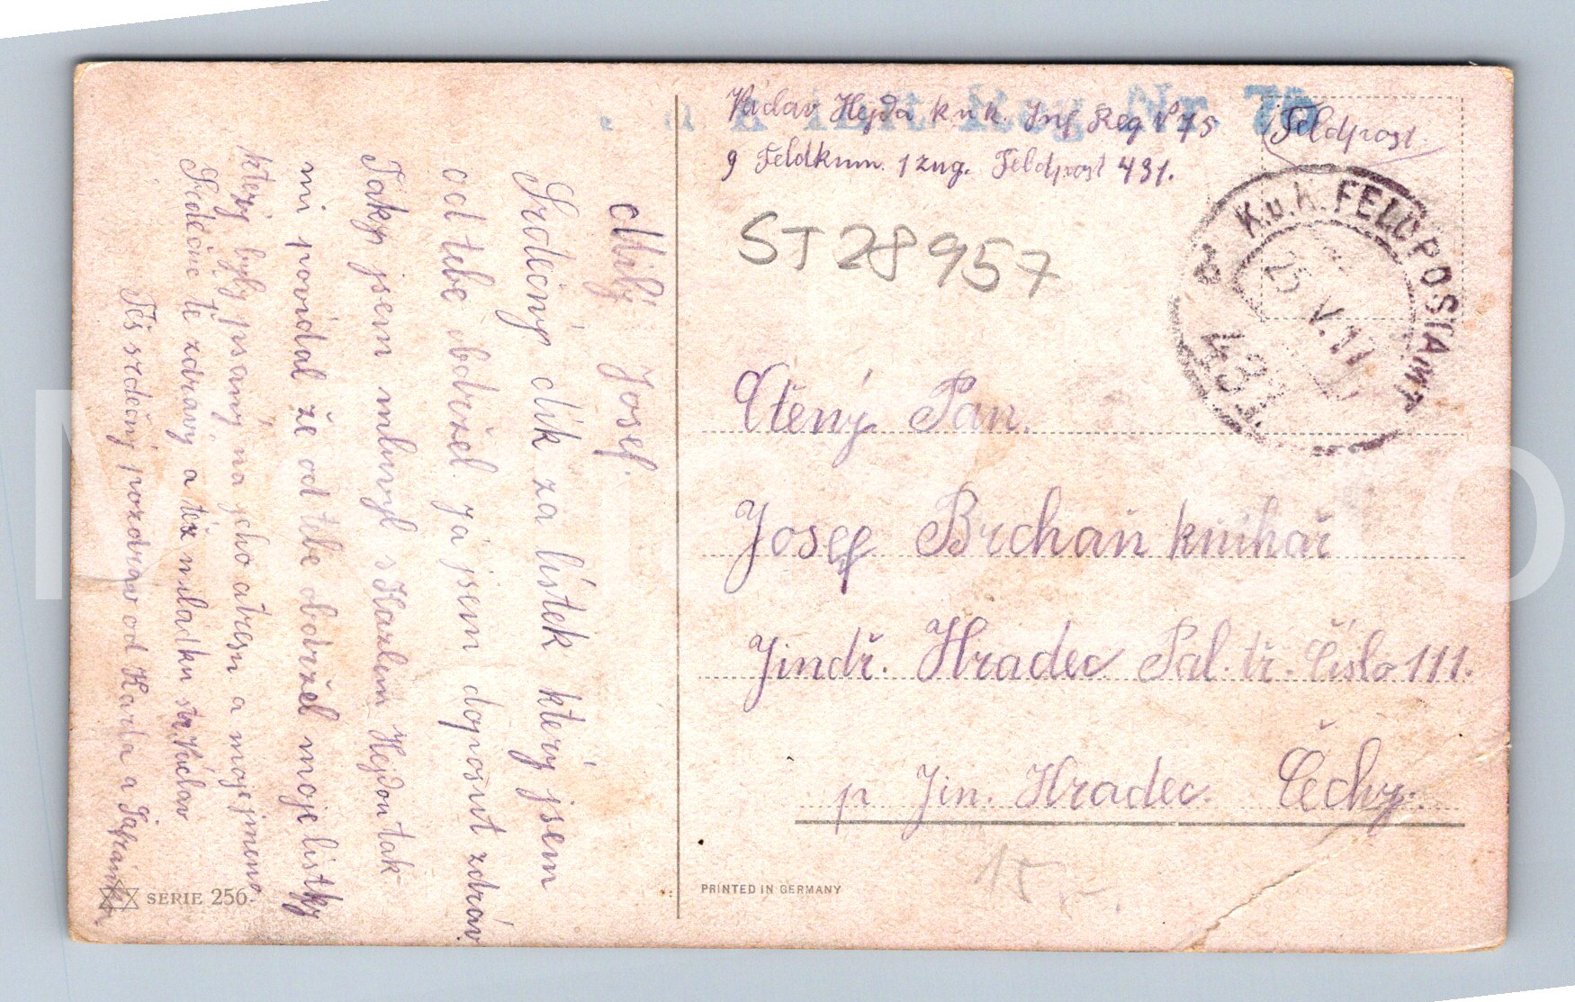 Václav Hejda k.u.k. Inf Reg No 75
9 Feldkum. 1 zug. Feldpost 431.
Feldpost.
Reg Nr 75
K.u.K. FELDPOSTAMT
25 V. 17
431
ST28957
Ctěný Pan.
Josef Brchaň knihař
Jindř. Hradec Pal. tř. Číslo 111.
p Jin. Hradec. Čechy.
15
PRINTED IN GERMANY
SERIE 256.
Milý Josef.
Srdečný dík za lístek který jsem
od tebe obdržel já jsem doposut zdráv
Taky jsem mluvyl s Hejdou tak
mi povídal že od tebe obdržel moje lístky
který byly psaný na jeho atresu a moje jmeno.
Srdečne tě zdravý a též mladku Václav
Též srdečný pozdrav od Karla a